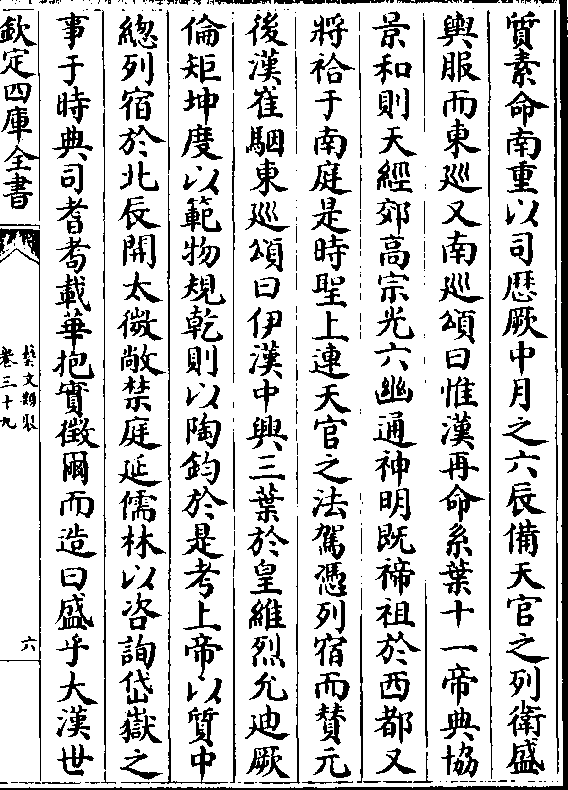 質素命南重以司厯厥中月之六辰備天官之列衛盛
輿服而東廵又南廵頌曰惟漢再命系葉十一帝典協
景和則天經郊高宗光六幽通神明既禘祖於西都又
將祫于南庭是時聖上連天官之法駕憑列宿而賛元
後漢崔駰東廵頌曰伊漢中興三葉於皇維烈允迪厥
倫矩坤度以範物規乾則以陶鈞於是考上帝以質中
總列宿於北辰開太微敞禁庭延儒林以咨詢岱嶽之
事于時典司耆耈載華抱實徵爾而造曰盛乎大漢世
欽定四庫全書
藝文類聚
卷三十九
六